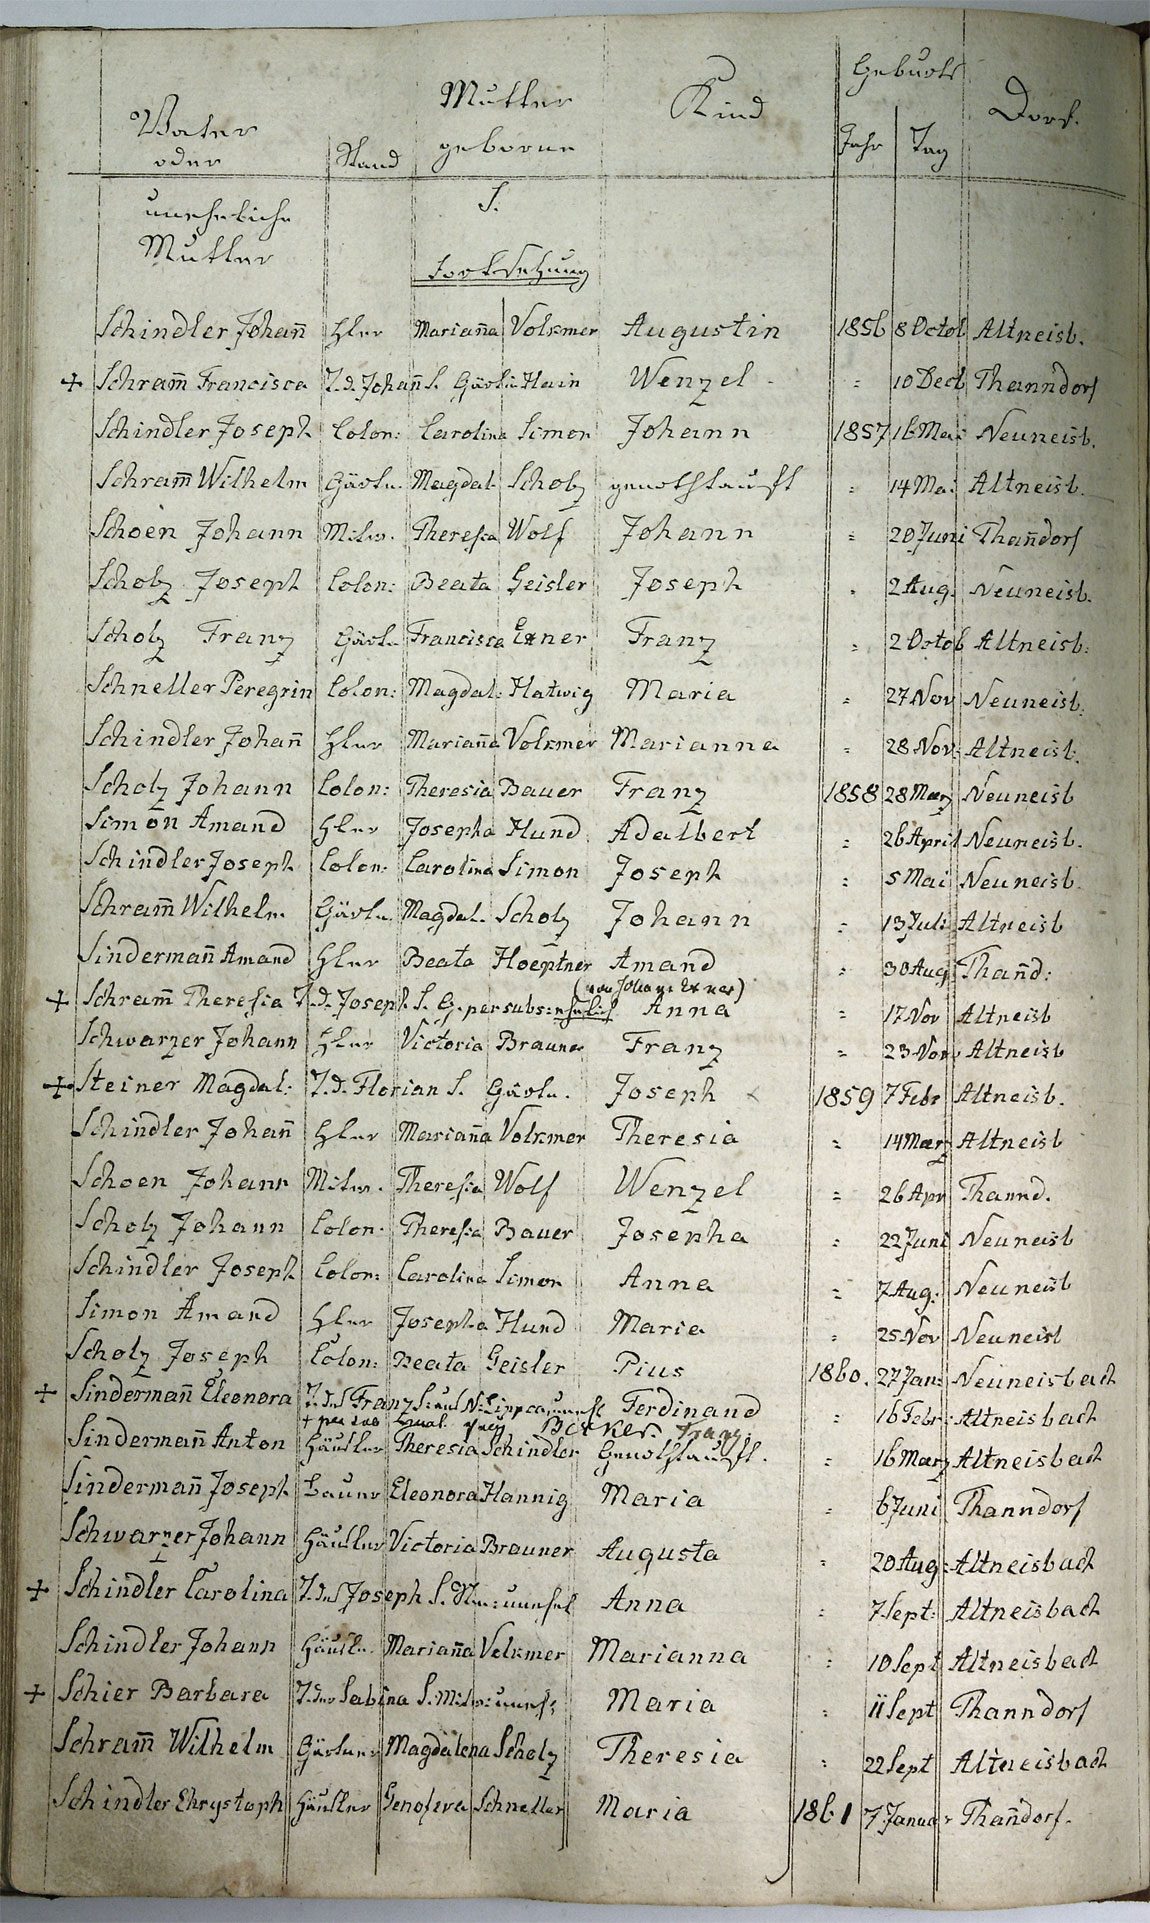 Vater oder uneheliche Mutter | Stand | Mutter geborne | Kind | Geburts Jahr | Tag | Dorf.
S.
Fortsetzung
Schindler Johan̄ Hler Marian̄a Volkmer Augustin 1856 8 Octob Altneisb.
+ Schram̄ Francisca T. d. Johan̄ S. Gärtn Hain Wenzel = 10 Decb Thanndorf
Schindler Joseph Colon: Carolina Simon Johann 1857 16 Mai Neuneisb.
Schram̄ Wilhelm Gärtn. Magdal. Scholz genothtauft = 14 Mai Altneisb.
Schoen Johann Mitw. Theresia Wolf Johann = 20 Juni Than̄dorf
Scholz Joseph Colon: Beata Geisler Joseph = 2 Aug. Neuneisb.
Scholz Franz Gärtn Francisca Exner Franz = 2 Octob Altneisb:
Schneller Peregrin Colon: Magdal: Hatwig Maria = 27 Nov Neuneisb.
Schindler Johan̄ Hler Marian̄a Volkmer Marianna = 28 Nov: Altneisb.
Scholz Johann Colon: Theresia Bauer Franz 1858 28 Merz Neuneisb
Simon Amand Hler Josepha Hund Adalbert = 26 April Neuneisb.
Schindler Joseph Colon: Carolina Simon Joseph = 5 Mai Neuneisb.
Schram̄ Wilhelm Gärtn. Magdal. Scholz Johann = 13 Juli Altneisb
Sinderman̄ Amand Hler Beata Hoeptner Amand = 30 Aug Than̄d:
(von Johann Exner)
+ Schram̄ Theresia T. d. Joseph S. G. per subs: ehelich Anna = 17 Nov Altneisb
Schwarzer Johann Hler Victoria Brauner Franz = 23 Nov: Altneisb
+ Steiner Magdal: T. d. Florian S. Gärtn. Joseph 1859 7 Febr Altneisb.
Schindler Johan̄ Hler Marian̄a Volkmer Theresia = 14 Merz Altneisb
Schoen Johann Mitw. Theresia Wolf Wenzel = 26 Apr Thannd.
Scholz Johann Colon: Theresia Bauer Josepha = 22 Juni Neuneisb
Schindler Joseph Colon: Carolina Simon Anna = 7 Aug: Neuneisb
Simon Amand Hler Josepha Hund Maria = 25 Nov Neuneisb
Scholz Joseph Colon: Beata Geisler Pius 1860. 27 Jan: Neuneisbach
+ Sinderman̄ Eleonora T. des Franz S: aus N: Lippca Ferdinand = 16 Febr: Altneisbach
Becker. Franz.
Sinderman̄ Anton Häusler Theresia Schindler Genothtauft. = 16 Merz Altneisbach
Sinderman̄ Joseph Bauer Eleonora Hannig Maria = 6 Juni Thanndorf
Schwarzer Johann Häusler Victoria Brauner Augusta = 20 Aug: Altneisbach
+ Schindler Carolina T. des Joseph S. unehel Anna = 7 Sept: Altneisbach
Schindler Johann Häusl. Marian̄a Volkmer Marianna = 10 Sept Altneisbach
+ Schier Barbara T. der Sabina S. Mitw: uneh: Maria = 11 Sept Thanndorf
Schram̄ Wilhelm Gärtner Magdalena Scholz Theresia = 22 Sept Altneisbach
Schindler Chrystoph Häusler Genofeva Schneller Maria 1861 7 Januar Than̄dorf.